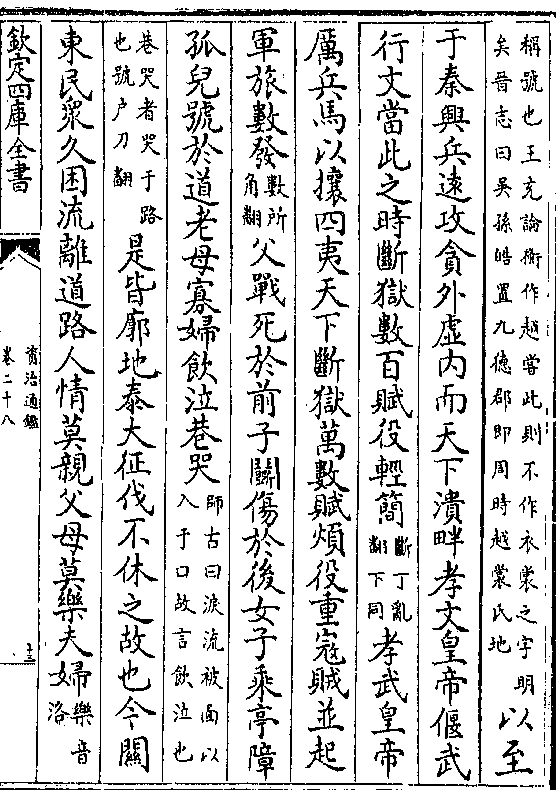 稱號也王充論衡作越甞此則不作衣裳之字明
矣晉志曰吳孫皓置九德郡即周時越裳氏地
以至
于秦興兵遠攻貪外虛内而天下潰畔孝文皇帝偃武
行文當此之時斷獄數百賦役輕簡
斷丁亂
翻下同
孝武皇帝
厲兵馬以攘四夷天下斷獄萬數賦煩役重寇賊並起
軍旅數發
數所
角翻
父戰死於前子鬭傷於後女子乘亭障
孤兒號於道老母寡婦飲泣巷哭
師古曰淚流被面以
入于口故言飲泣也
巷哭者哭于路
也號户刀翻
是皆廓地泰大征伐不休之故也今關
東民衆久困流離道路人情莫親父母莫樂夫婦
樂音
洛
欽定四庫全書
資治通鑑
卷二十八
十三